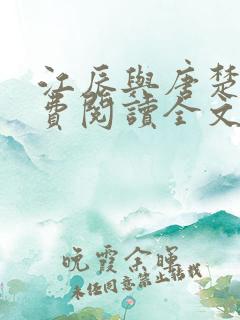 江辰與唐楚
費閱讀全文
晚霞余暉
未经同意禁止转载